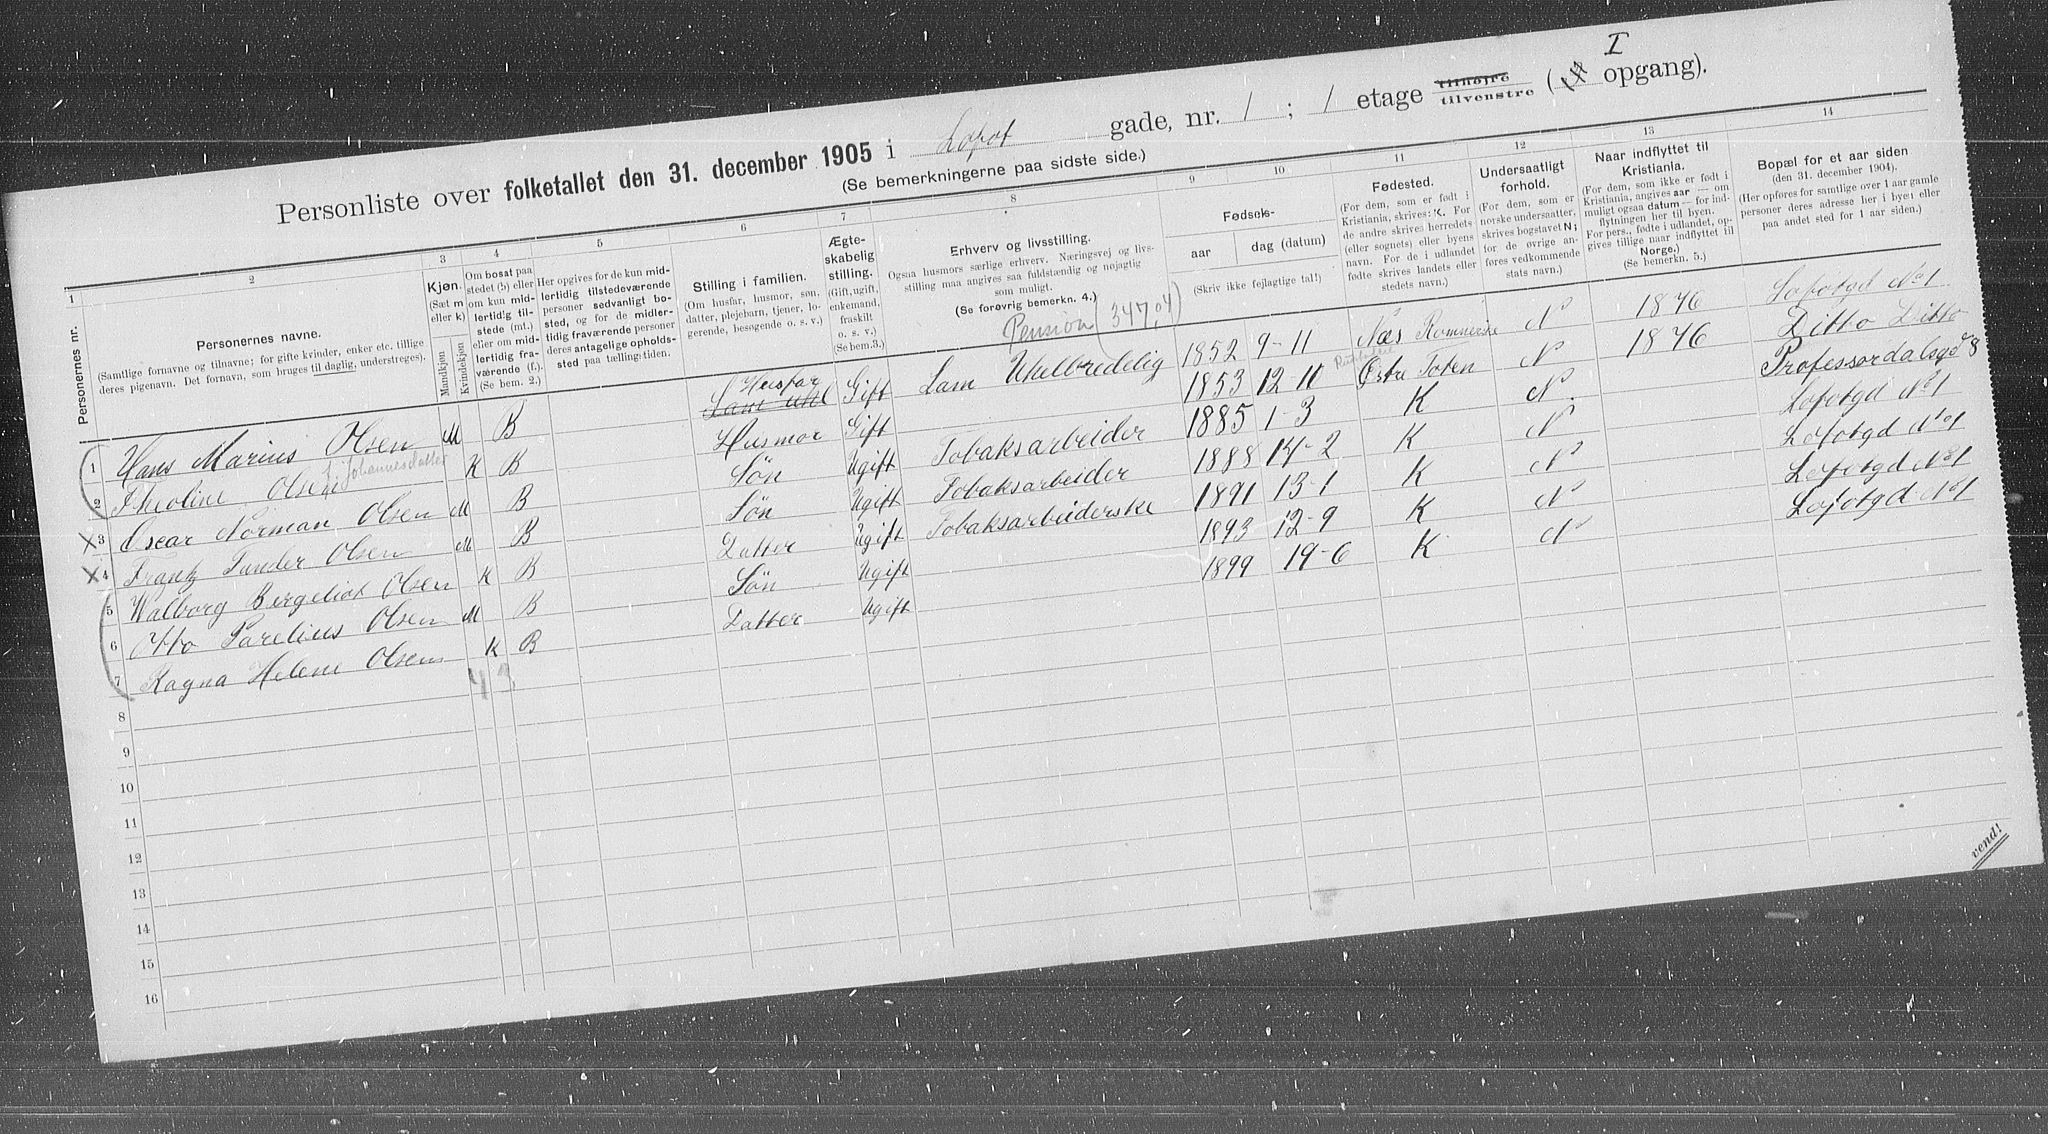 I
Personliste over folketallet den 31. december 1905 i Lofot gade, nr. 1 ; 1 etage tilhøjre tilvenstre ( opgang).
(Se bemerkningerne paa sidste side.)
1 2 3 4 5 6 7 8 9 10 11 12 13 14
Personernes nr.
Personernes navne.
(Samtlige fornavne og tilnavne; for gifte kvinder, enker etc. tillige
deres pigenavn. Det fornavn, som bruges til daglig, understreges).
Kjøn.
(Sæt m
eller k)
Mandkjøn
Kvindekjøn
Om bosat paa
stedet (b) eller
om kun mid-
lertidig til-
stede (mt.)
eller om mid-
lertidig fra-
værende (f.).
(Se bem. 2.)
Her opgives for de kun mid-
lertidig tilstedeværende
personer sedvanligt bo-
sted, og for de midler-
tidig fraværende personer
deres antagelige opholds-
sted paa tællingstiden.
Stilling i familien.
(Om husfar, husmor, søn,
datter, plejebarn, tjener, lo-
gerende, besøgende o. s. v.)
Ægte-
skabelig
stilling.
(Gift, ugift,
enkemand,
fraskilt
o. s. v.)
(Se bem. 3.)
Erhverv og livsstilling.
Ogsaa husmors særlige erhverv. Næringsvej og livs-
stilling maa angives saa fuldstændig og nøjagtig
som muligt.
(Se forøvrig bemerkn. 4.)
Fødsels-
aar
dag (datum)
(Skriv ikke fejlagtige tal!)
Fødested.
(For dem, som er født i
Kristiania, skrives: K. For
de andre skrives herredets
(eller sognets) eller byens
navn. For de i udlandet
fødte skrives landets eller
stedets navn.)
Undersaatligt
forhold.
(For dem, som er
norske undersaatter,
skrives bogstavet N;
for de øvrige an-
føres vedkommende
stats navn.)
Naar indflyttet til
Kristiania.
(For dem, som ikke er født i
Kristiania, angives aar — om
muligt ogsaa datum — for ind-
flytningen her til byen.
For pers., fødte i udlandet, op-
gives tillige naar indflyttet til
Norge.)
(Se bemerkn. 5.)
Bopæl for et aar siden
(den 31. december 1904).
(Her opføres for samtlige over 1 aar gamle
personer deres adresse her i byen eller
paa andet sted for 1 aar siden.)
Pension (347,04)
1 Hans Marius Olsen M B Lam Uhl Husfar Gift Lam Uhelbredelig 1852 9-11 Næs Romerike N 1876 Lofotgd No 1
2 Theoline Olsen f. Johannesdatter K B Husmor Gift 1853 12-11 Østre Toten N 1876 Ditto Ditto
x 3 Oscar Norman Olsen M B Søn Ugift Tobaksarbeider 1885 1-3 K N. Professordalsgd 8
x 4 Frantz Tunder Olsen M B Søn Ugift Tobaksarbeider 1888 14-2 K N Lofotgd No 1
5 Walborg Bergeliot Olsen K B Datter Ugift Tobaksarbeiderske 1891 13-1 K N Lofotgd No 1
6 Otto Parelius Olsen M B Søn Ugift 1893 12-9 K N Lofotgd No 1
7 Ragna Helene Olsen K B Datter Ugift 1899 19-6 K N Lofotgd No 1
4 3
8
9
10
11
12
13
14
15
16
vend!